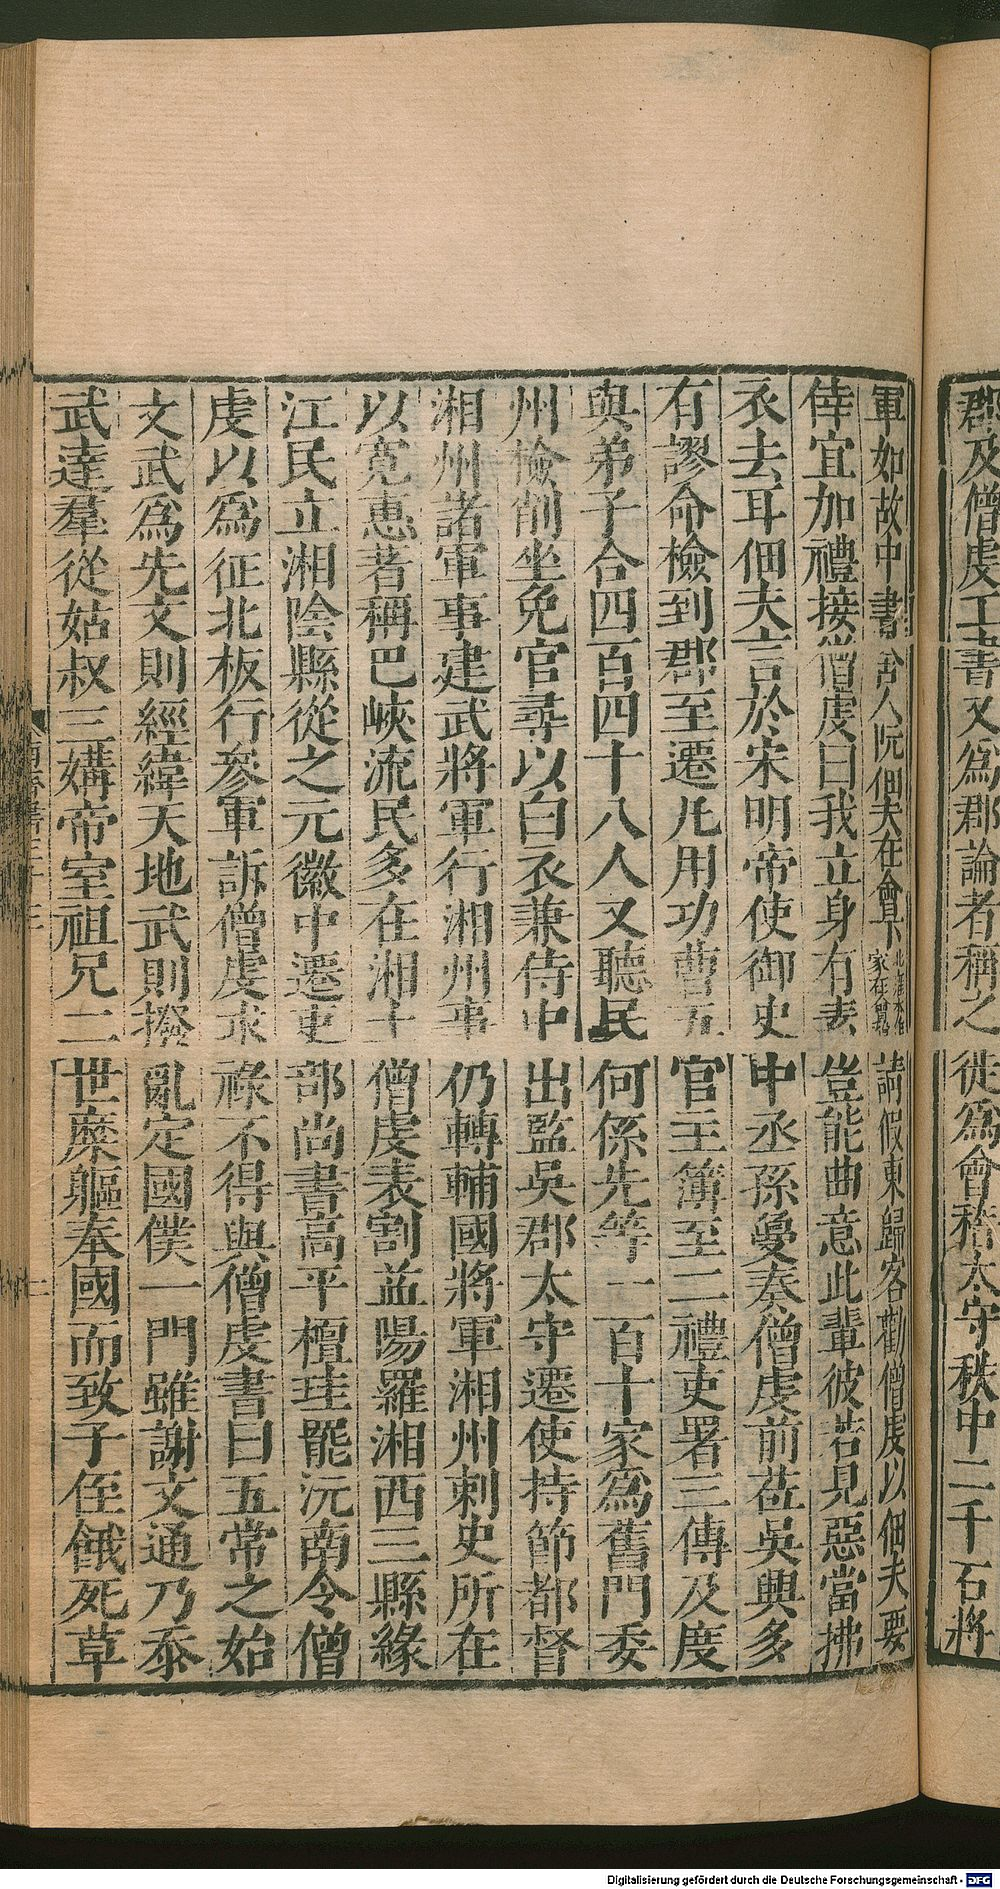 郡及僧虔工書又為郡論者稱之徙為會稽太守秩中二千石將
軍如故中書舍人阮佃夫在會下請假東歸客勸僧虔以佃夫要
倖宜加禮接僧虔曰我立身有素豈能曲意此輩彼若見惡當拂
衣去耳佃夫言於宋明帝使御史中丞孫敻奏僧虔前莅吳興多
有謬命檢到郡至遷凡用功曹五官主簿至二禮吏署三傳及度
與弟子合四百四十八人又聽民何係先等一百十家為舊門委
州檢削坐免官尋以白衣兼侍中出監吳郡太守遷使持節都督
湘州諸軍事建武將軍行湘州事仍轉輔國將軍湘州刺史所在
以寬惠著稱巴峽流民多在湘土僧虔表割益陽羅湘西三縣緣
江民立湘陰縣從之元徽中遷吏部尚書高平檀珪罷沅南令僧
虔以為征北板行參軍訴僧虔求祿不得與僧虔書曰五常之始
文武為先文則經緯天地武則撥亂定國僕一門雖謝文通乃忝
武達羣從姑叔三媾帝室祖兄二世糜軀奉國而致子侄餓死草
Digitalisierung gefördert durch die Deutsche Forschungsgemeinschaft - DFG